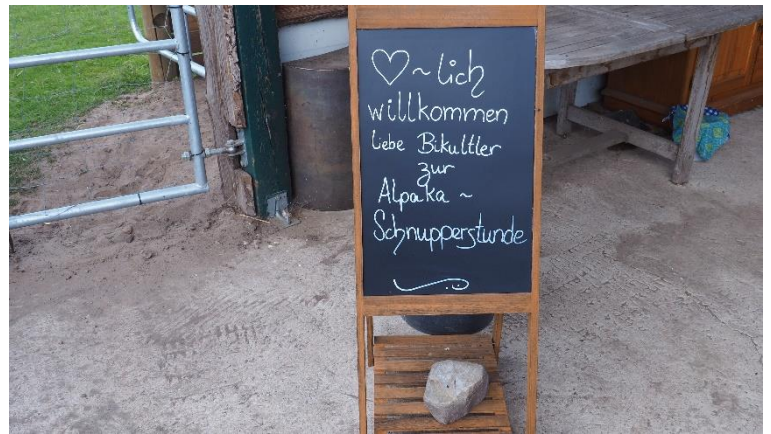 ♡~lich
willkommen
liebe Bikultler
zur
Alpaka ~
Schnupperstunde